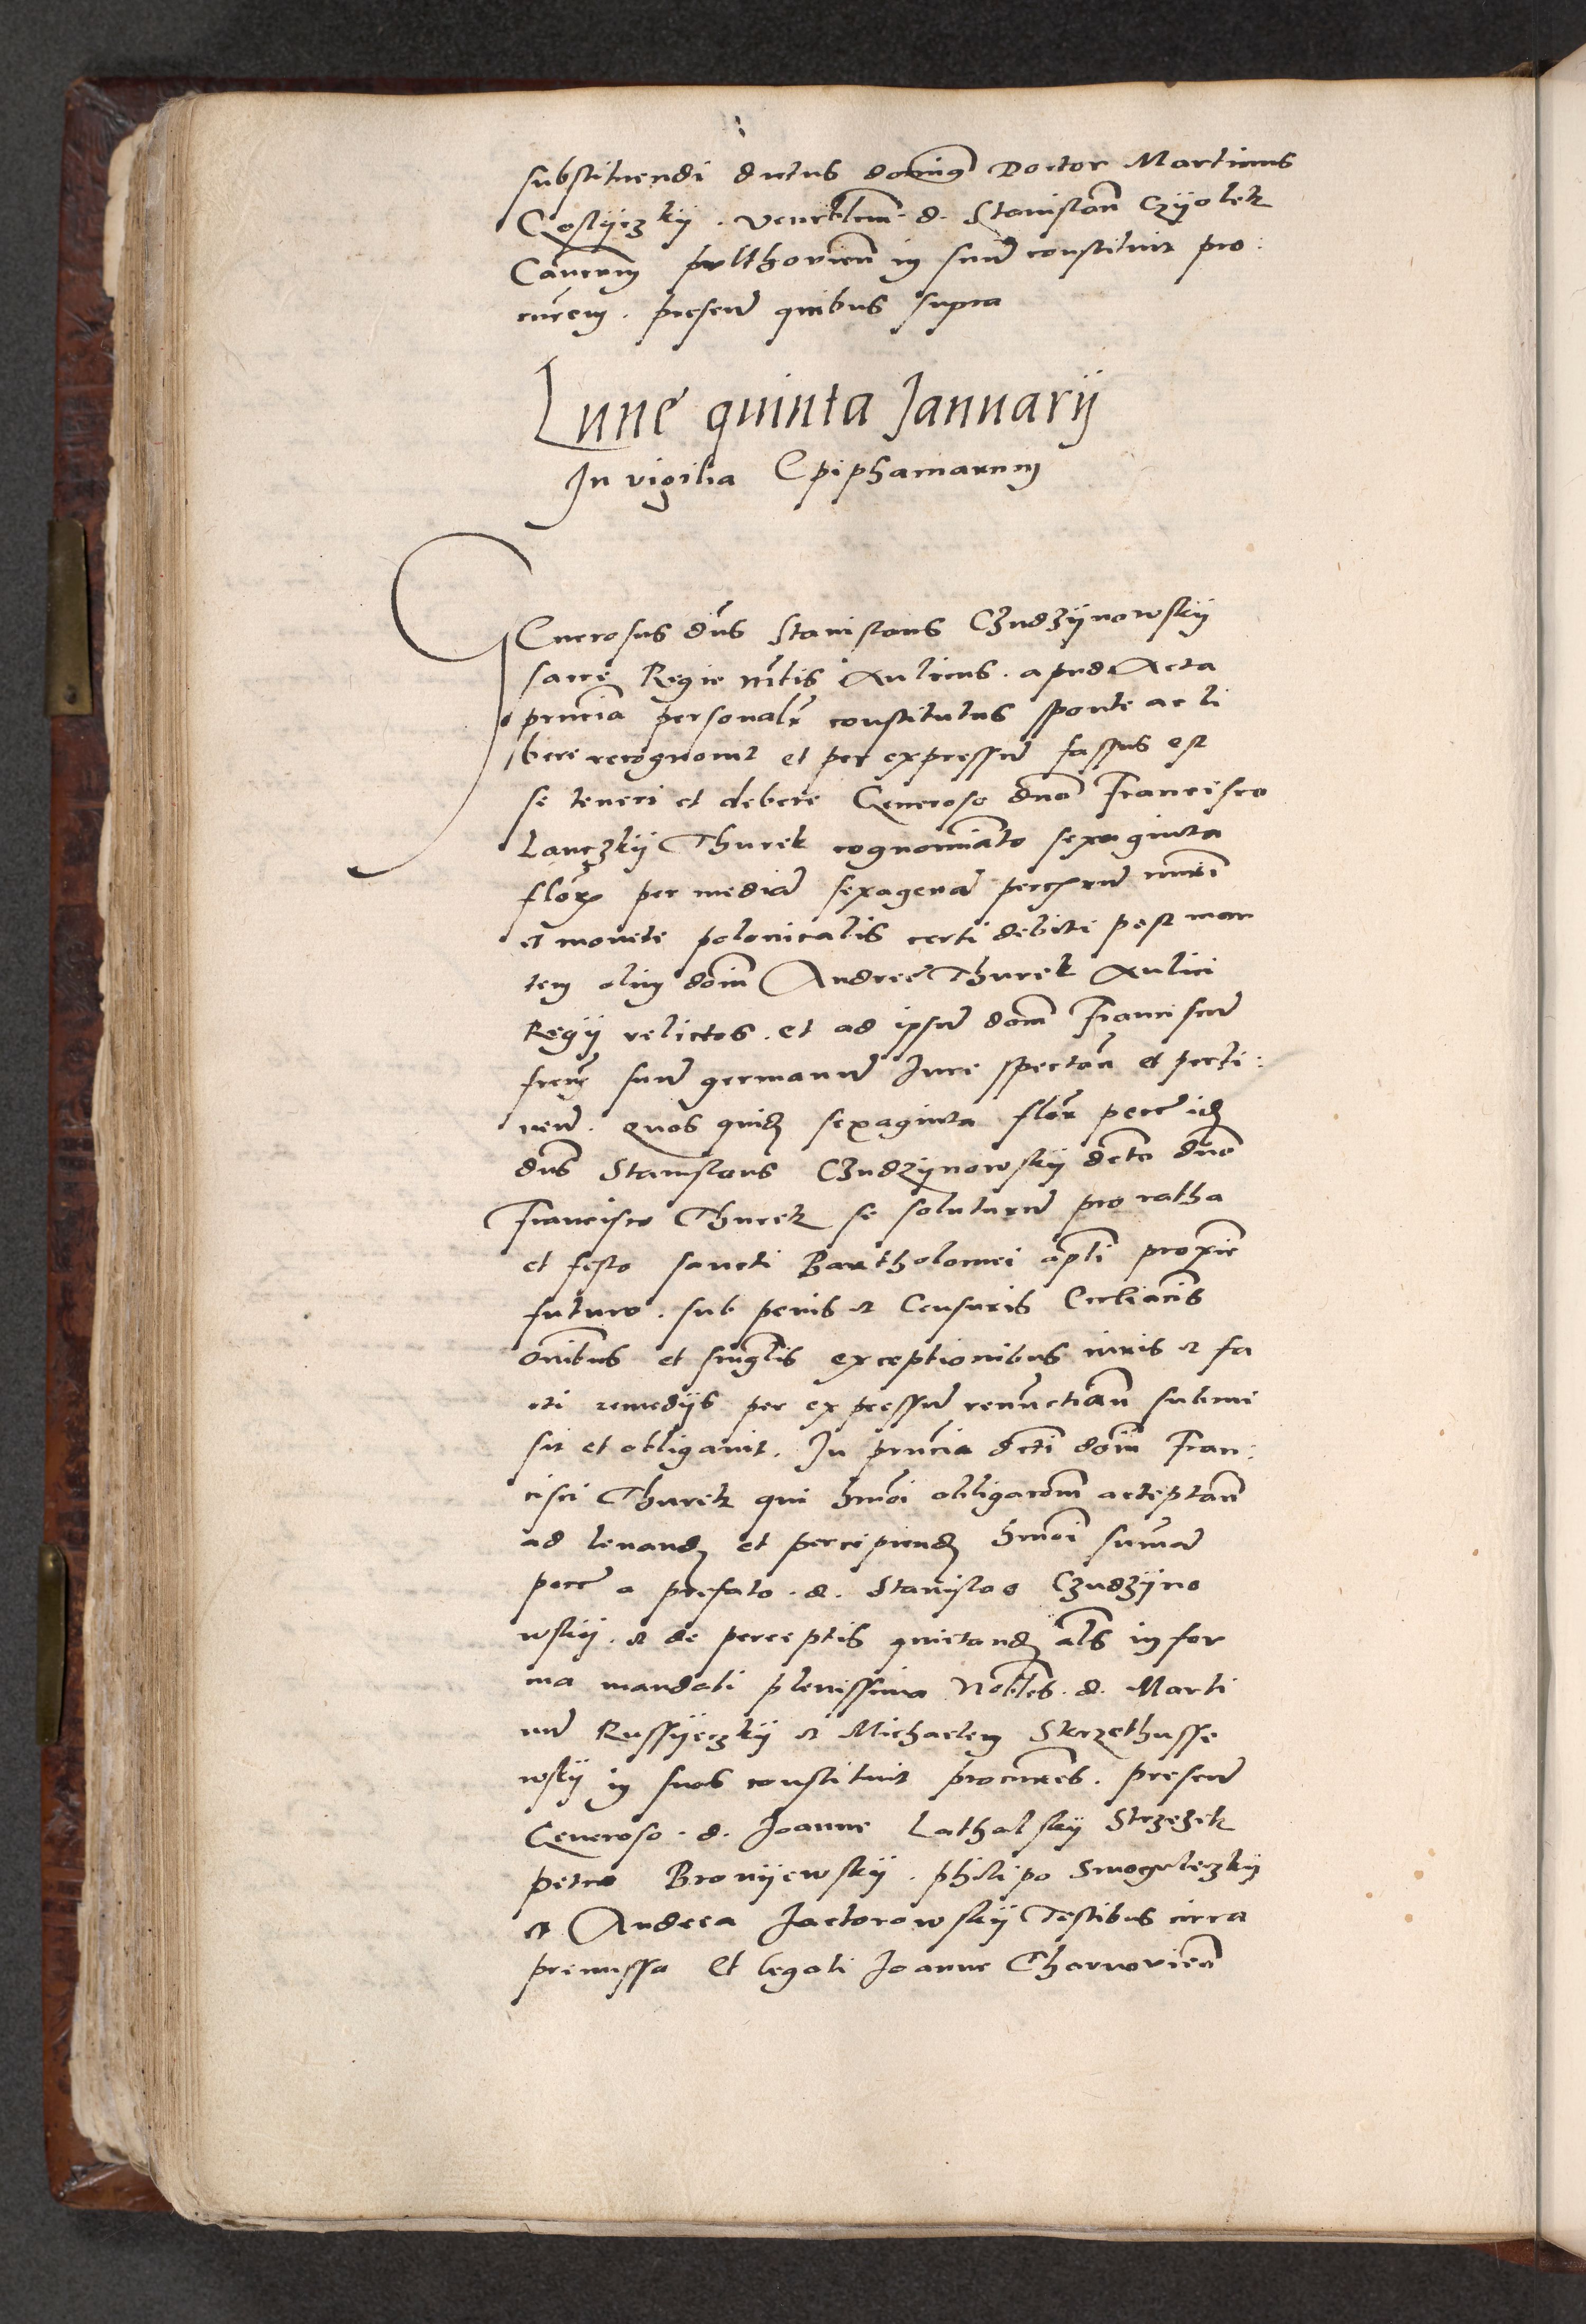 substituendi dictus dominus Doctor Martinus
Gostijczkij . venerblem . d . Stanislaum Czijolek
Canonicum pulthovien in suum constituit pro:
curem . presen quibus supra
Lune quinta Januarij
In vigilia Epiphaniarum
Generosus dns Stanislaus Czudzijnowskij
sacre Regie mtis Aulicus . apud Acta
prncia personalr constitutus sponte ac li
bere recognovit et per expressum fassus est
se teneri et debere Generoso dno Francisco
Lanczkij Thurek cognominato sexaginta
flor per mediam sexagenam peccuniarum numeri
et monete polonicalis certi debiti post mor
tem olim domini Andree Thurek Aulici
Regij relictos . et ad ipsum dom Franciscum
frem suum germanum Jure spectan et perti:
nen . Quos quidem sexaginta flor pecc idem
dns Stanislaus Czudzijnowskij dcto dno
Francisco Thurek se soluturum pro ratha
et festo sancti Bartholomei apli proxime
futuro . sub penis et Censuris Eccliacis
omnibus et singulis exceptionibus iuris et fa
cti remedijs per expressum renunctian submi
sit et obligavit . In prncia dcti domini Fran:
cisci Thurek qui hmoi obligacionem acceptan
ad levandum et percipiendum hmoi summam
pecc a prefato . d . Stanislao Czudzijno
wskij . et de perceptis quietandum als in for
ma mandati plenissima Nobiles . d . Marti
num Russijeczkij et Michaelem Skrzethusse
wskij in suos constituit procuratores . presen
Generoso . d . Joanne Lathalskij Strzezek
petro Bronijewskij . philipo Smoguleczkij
et Andrea Jactorowskij Testibus circa
premissa Et legati Joanne Tharnovien